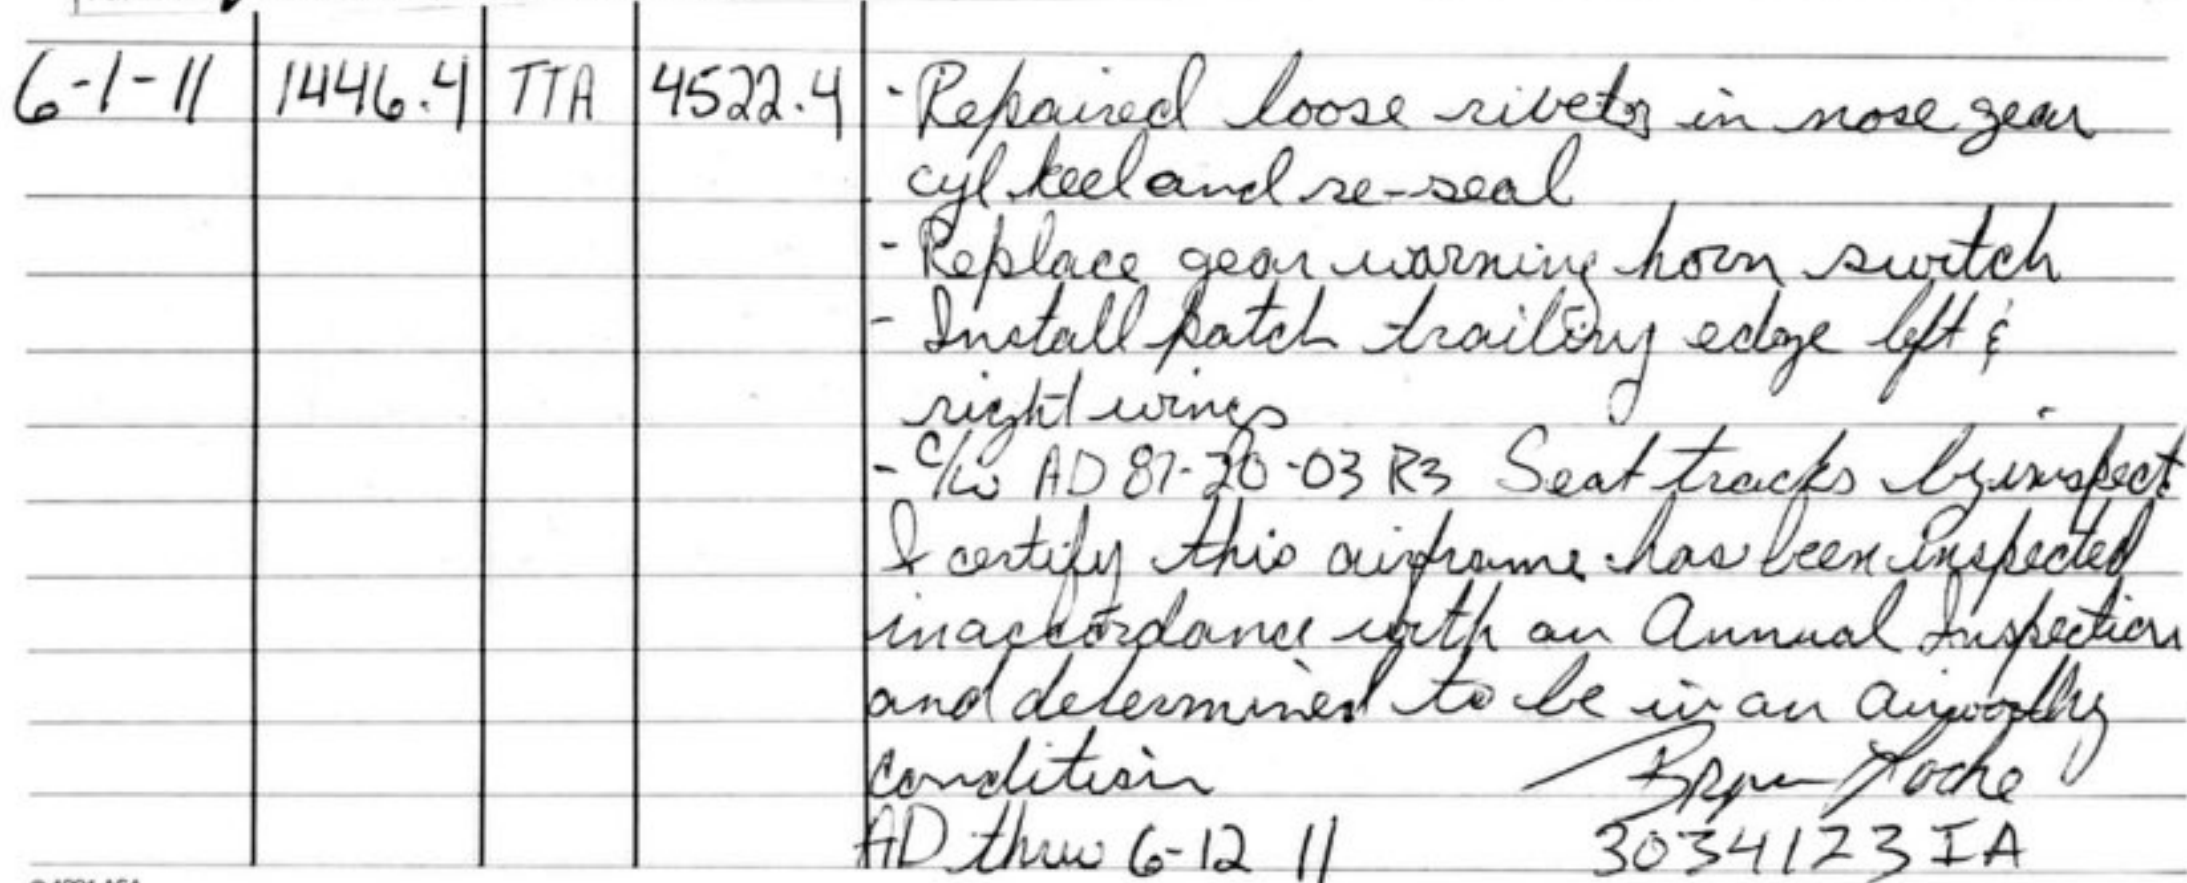 6-1-11 1446.4 TTA 4522.4 - Repaired loose rivets in nose gear
cyl keel and re-seal
- Replace gear warning horn switch
- Install patch trailing edge left &
right wings
- c/w AD 87-20-03 R3 Seat tracks by inspect
I certify this airframe has been inspected
in accordance with an Annual Inspection
and determined to be in an airworthy
condition Bryan
AD thru 6-12 11 3034123 IA